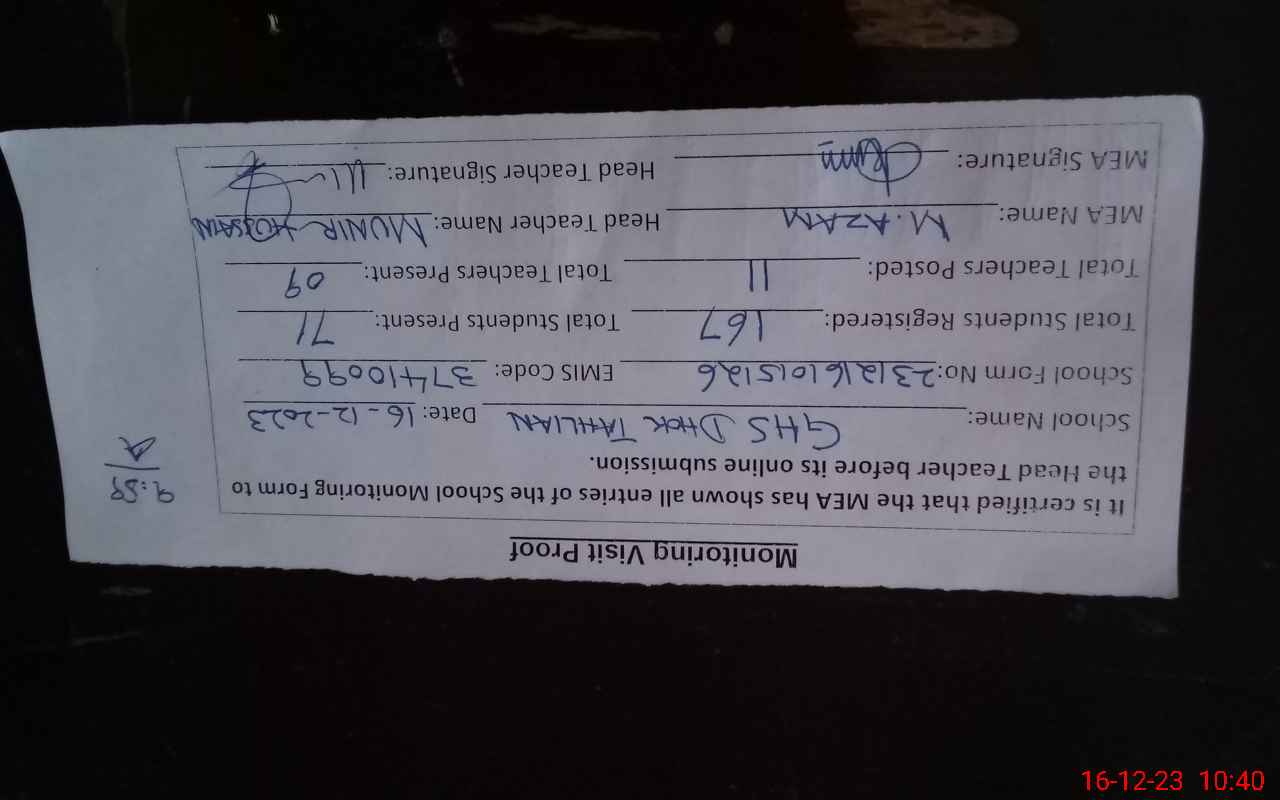 Monitoring Visit Proof
It is certified that the MEA has shown all entries of the School Monitoring Form to
the Head Teacher before its online submission.
9:59
School Name: GHS DHOK TAHLIAN Date: 16-12-2023
School Form No: 2312161015126 EMIS Code: 37410099
Total Students Registered: 167 Total Students Present: 71
Total Teachers Posted: 11 Total Teachers Present: 09
MEA Name: M. AZAM Head Teacher Name: MUNIR HUSSAIN
MEA Signature: Head Teacher Signature:
16-12-23 10:40